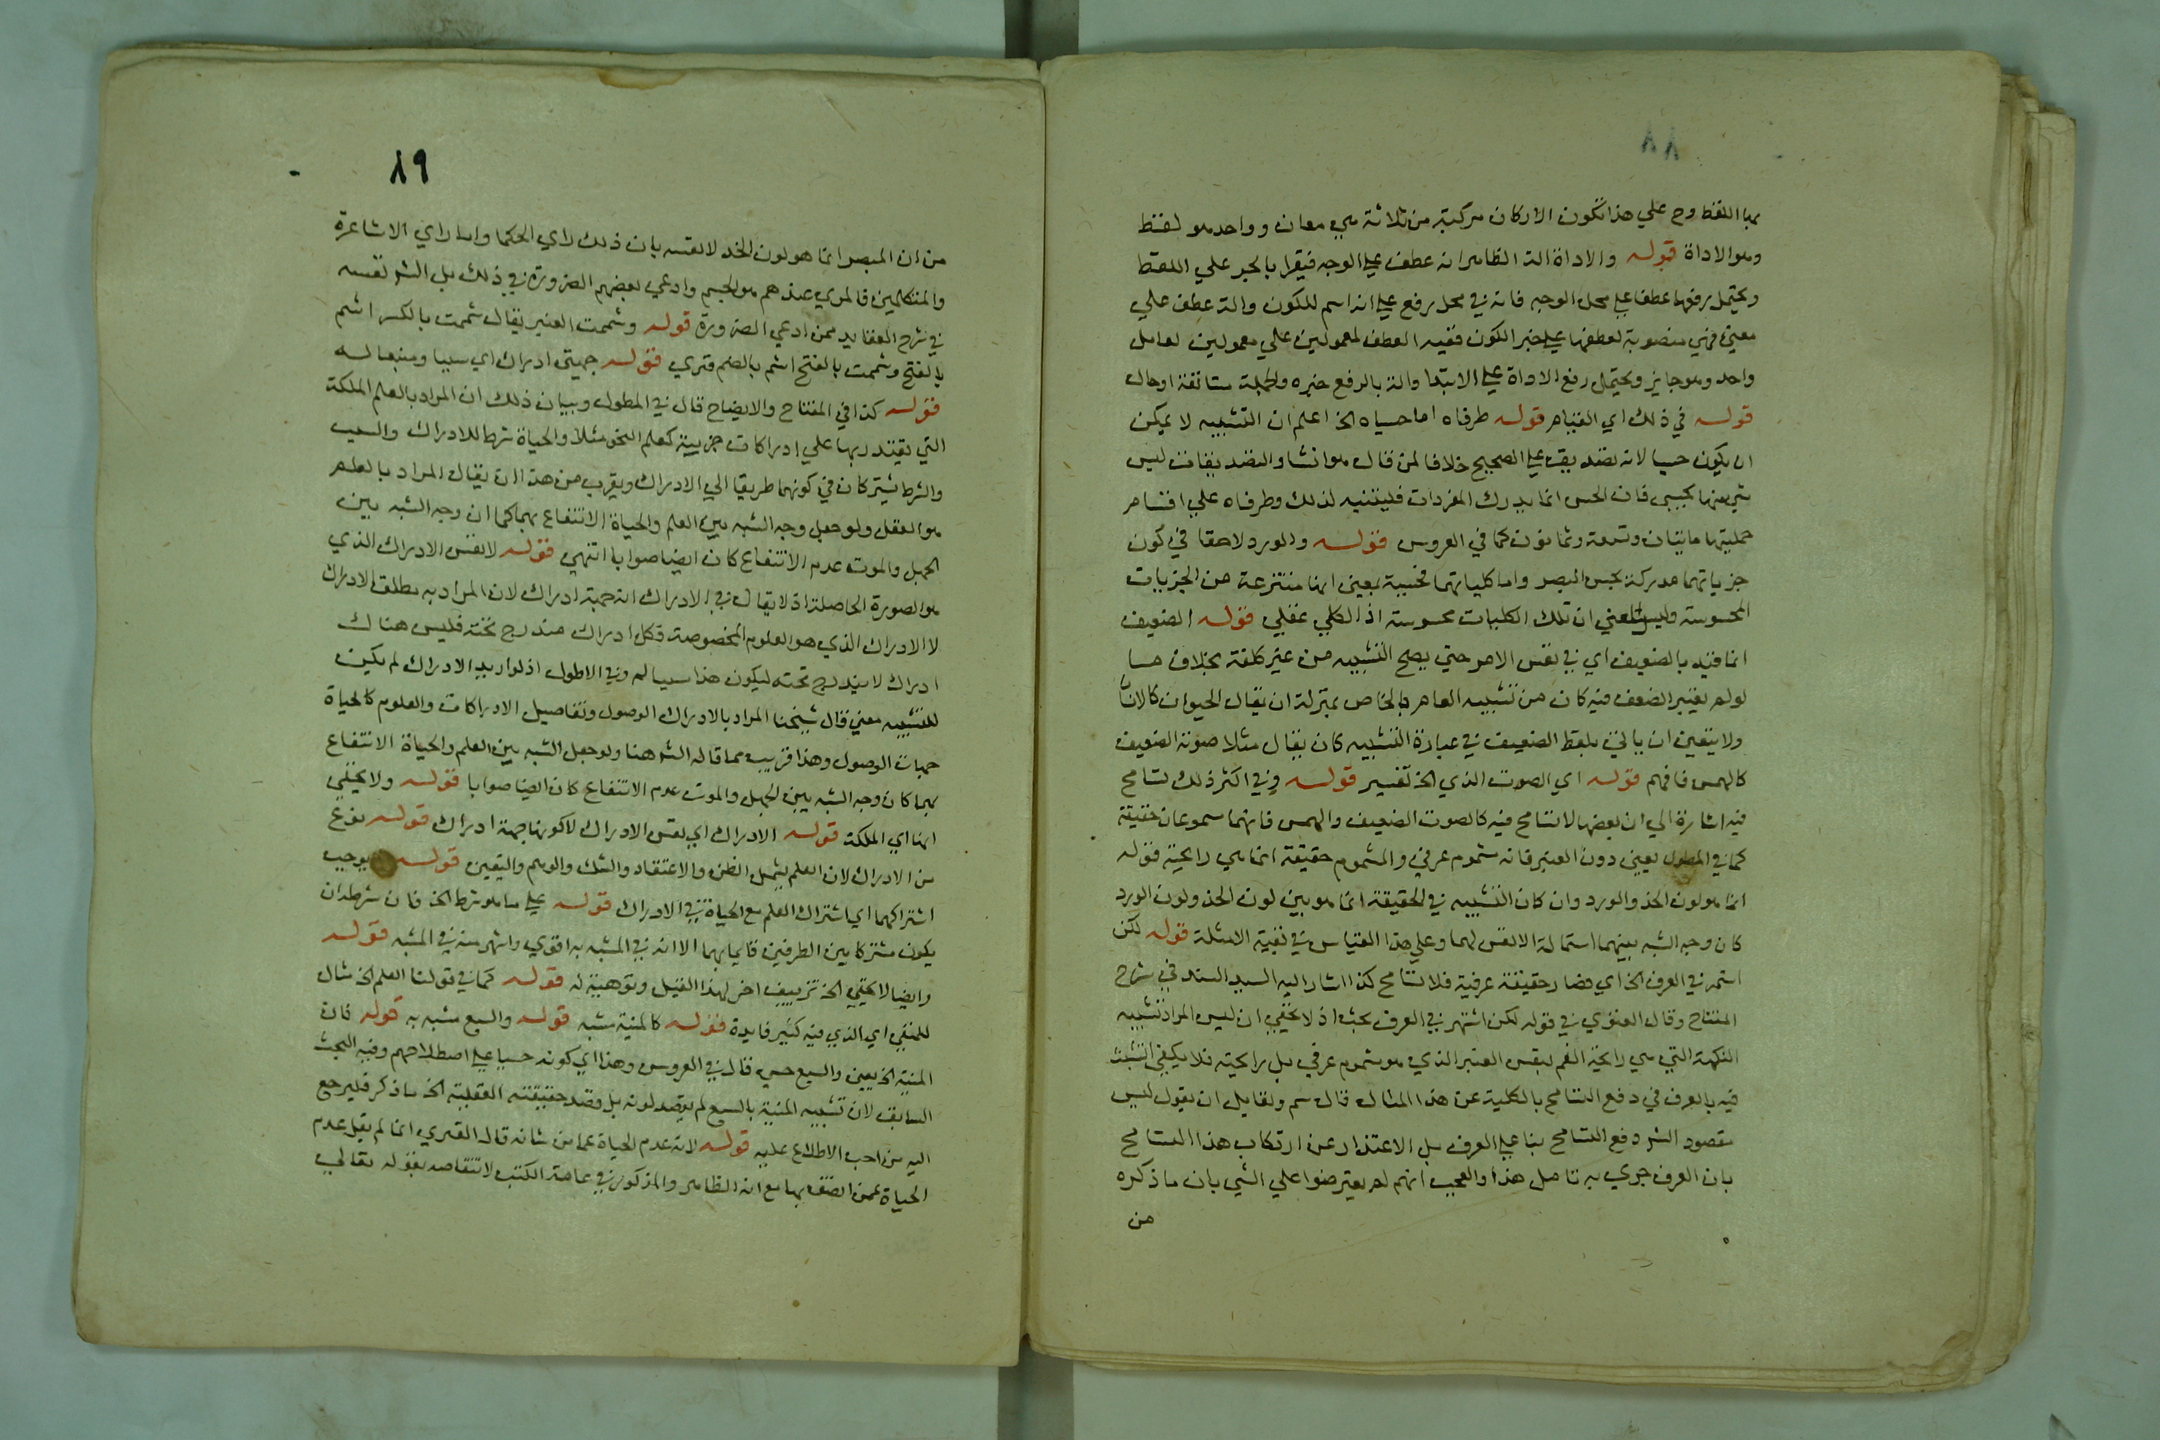 ٨٨
بها اللفظ وح علي هذا تكون الاركان مركبة من ثلاثة هي معان وواحد هو لفظ
وهو الاداة قوله والاداة الة الظاهر انه عطف علي الوجه فيقرا بالجر علي اللفظ
ويحتمل رفعها عطفا علي محل الوجه فانه في محل رفع علي انه اسم للكون والة عطف علي
معني فهي منصوبة لعطفها علي خبر الكون ففيه العطف لمعمولين علي معمولين لعامل
واحد وهو جايز ويحتمل رفع الاداة علي الابتدا والة بالرفع خبره والجملة مستانفة او حال
قوله في ذلك اي القيام قوله طرفاه اما حسيان الخ اعلم ان التشبيه لا يمكن
ان يكون حسيا لانه تصديق علي الصحيح خلافا لمن قال هو انشا والتصديقات ليس
شي منها بحسي فان الحس انما يدرك المفردات فليتنبه لذلك وطرفاه علي اقسام
جملتها مايتان وتسعة وثمانون كما في العروس قوله والورد لاحقا في كون
جزياتهما مدركة بحس البصر واما كلياتهما فحسية بمعني انها منتزعة من الجزييات
المحسوسة وليس المعني ان تلك الكليات محسوسة اذ الكلي عقلي قوله الضعيف
انما قيد بالضعيف اي في نفس الامر حتي يصح التشبيه من غير كلفة بخلاف ما
لو لم يعتبر الضعف فيه كان من تشبيه العام بالخاص بمنزلة ان يقال الحيوان كالانسان
ولا يتعين ان ياتي بلفظ الضعيف في عبارة التشبيه كان يقال مثلا صوته الضعيف
كالهمس فافهم قوله اي الصوت الذي الخ تفسير قوله وفي اكثر ذلك تسامح
فيه اشارة الي ان بعضها لا تسامح فيه كالصوت الضعيف والهمس فانهما مسموعان حقيقة
كما في المطول يعني دون العنبر فانه مشموم عرفي والمشموم حقيقة انما هي رايحته قوله
انما هو لون الخد والورد وان كان التشبيه في الحقيقة انما هو بين لون الخد ولون الورد
كان وجه الشبه بينهما استمالة الانفس لهما وعلي هذا القياس في بقية الامثلة قوله لكن
استمر في العرف الخ اي فصار حقيقة عرفية فلا تسامح كذا اشار اليه السيد السند في شرح
المفتاح وقال الفنري في قوله لكن اشتهر في العرف بحث اذ لا يخفي ان ليس المراد تشبيه
النكهة التي هي رايحة الفم بنفس العنبر الذي هو مشموم عرفي بل برايحته فلا يكفي التشبث
فيه بالعرف في دفع التسامح بالكلية عن هذا المثال قال سم ولقايل ان يقول ليس
مقصود الش دفع التسامح بنا علي العرف بل الاعتذار عن ارتكاب هذا التسامح
بان العرف جري به تامل هذا والعجب انهم لم يعترضوا علي الشي بان ما ذكره
من
٨٩
من ان المبصر انما هو لون الخد لا نفسه بان ذلك راي الحكما واما راي الاشاعرة
والمتكلمين فالمري عندهم هو الجسم وادعي بعضهم الضرورة في ذلك بل الش نفسه
في شرح العقايد ممن ادعي الضرورة قوله وشممت العنبر يقال شممت بالكسر اشم
بالفتح وشممت بالفتح اشم بالضم فتري قوله جهتي ادراك اي سببا ومنبعا له
قوله كذا في المفتاح والايضاح قال في المطول وبيان ذلك ان المراد بالعلم الملكة
التي يقتدر بها علي ادراكات جزيية كعلم النحو مثلا والحياة شرط للادراك والسبب
والشرط يشتركان في كونهما طريقا الي الادراك ويقرب من هذا ان يقال المراد بالعلم
هو العقل ولو جعل وجه الشبه بين العلم والحياة الانتفاع بهما كما ان وجه الشبه بين
الجهل والموت عدم الانتفاع كان ايضا صوابا انتهي قوله لا نفس الادراك الذي
هو الصورة الحاصلة اذ لا يقال في الادراك انه جهة ادراك لان المراد به مطلق الادراك
لا الادراك الذي هو العلوم المخصوصة فكل ادراك مندرج تحته فليس هناك
ادراك لا يندرج تحته ليكون هذا سببا له وفي الاطول اذ لو اريد الادراك لم يكن
للتشبيه معني قال شيخنا المراد بالادراك الوصول وتفاصيل الادراكات والعلوم كالحياة
جهات الوصول وهذا قريب مما قاله الش هنا ولو جعل الشبه بين العلم والحياة الانتفاع
بهما كان وجه الشبه بين الجهل والموت عدم الانتفاع كان ايضا صوابا قوله ولا يخفي
انها اي الملكة قوله الادراك اي نفس الادراك لا كونها جهة ادراك قوله نوع
من الادراك لان العلم يشمل الظن والاعتقاد والشك والوهم واليقين قوله يوجب
اشتراكهما اي اشتراك العلم مع الحياة في الادراك قوله علي ما هو شرط الخ فان شرطه ان
يكون مشتركا بين الطرفين قايما بهما الا انه في المشبه به اقوي واشهر منه في المشبه قوله
وايضا لا يخفي الخ تزييف اخر لهذا القيل وتوهين له قوله كما في قولنا العلم الخ مثال
للمنفي اي الذي فيه كثير فايدة قوله كالمنية مشبه قوله والسبع مشبه به قوله فان
المنية الخ يعني والسبع حسي قال في العروس وهذا اي كونه حسيا علي اصطلاحهم وفيه البحث
السابق لان تشبيه المنية بالسبع لم يقصد لونه بل قصد حقيقته العقلية الخ ما ذكر فليرجع
اليه من احب الاطلاع عليه قوله لانه عدم الحياة عما من شانه قال الفنري انما لم يقل عدم
الحياة عمن اتصف بها مع انه الظاهر والمذكور في عامة الكتب لانتقاصه بقوله تعالي